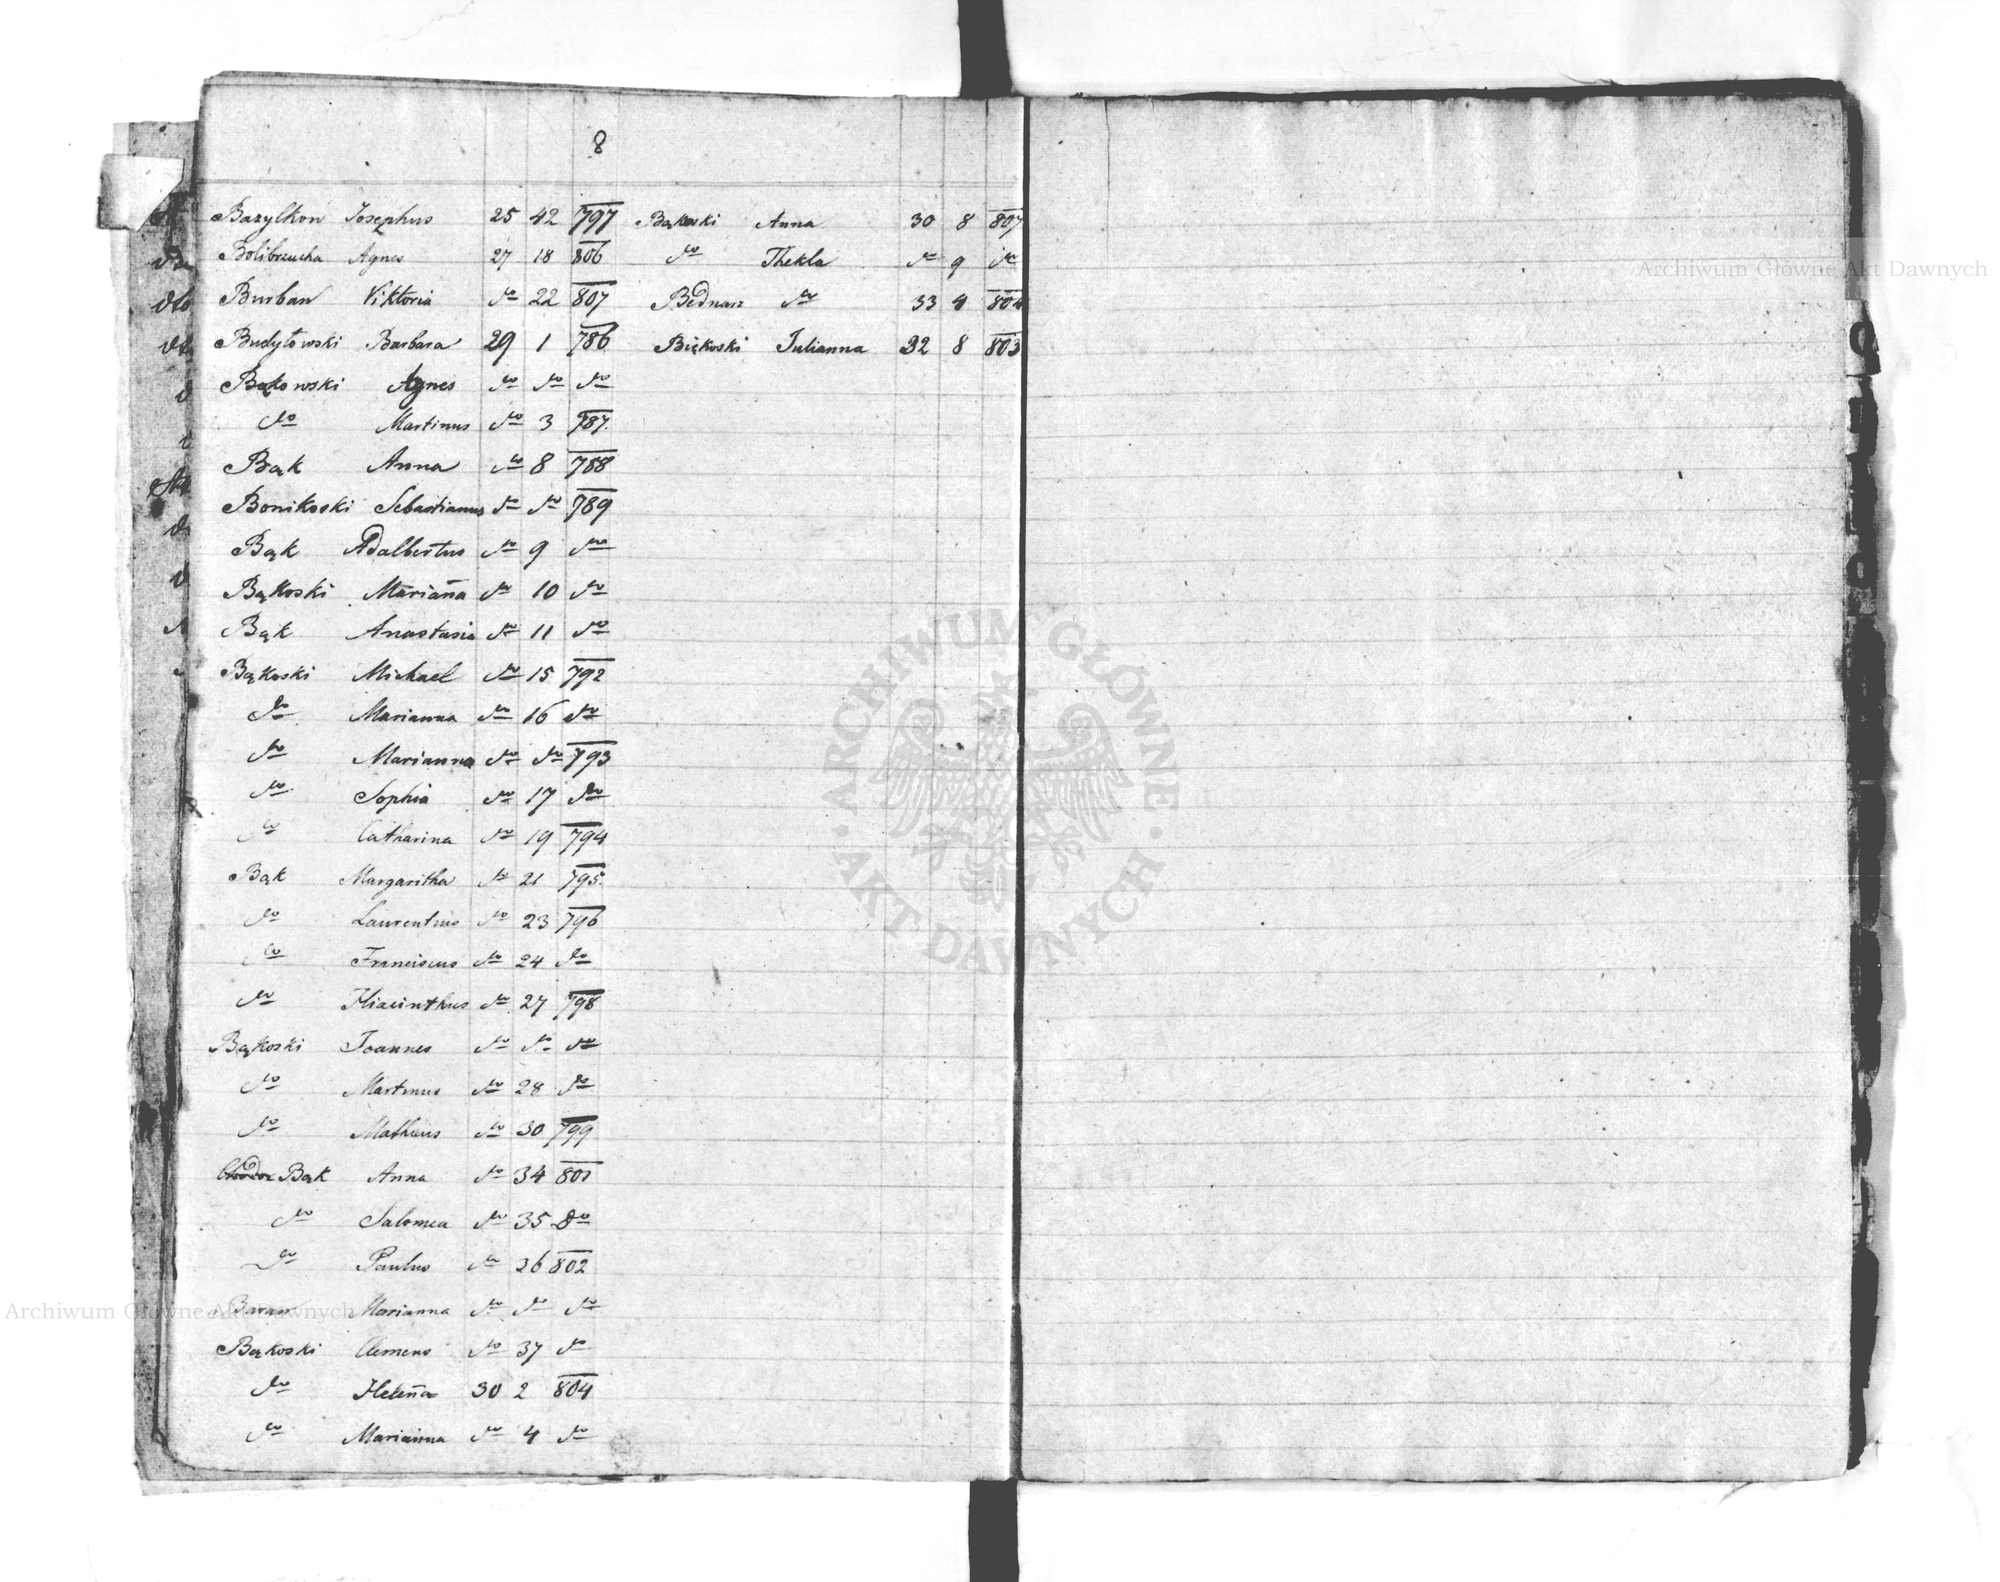 8
Bazylkon Josephus 25 42 797
Bolibrzucha Agnes 27 18 806
Burban Viktoria do 22 807
Budytowski Barbara 29 1 786
Bąkowski Agnes do do do
do Martinus do 3 787.
Bąk Anna do 8 788
Bonikoski Sebastianus do do 789
Bąk Adalbertus do 9 do
Bąkoski Mariana do 10 do
Bąk Anastasia do 11 do
Bąkoski Michael do 15 792
do Marianna do 16 do
do Marianna do do 793
do Sophia do 17 do
do Catharina do 19 794
Bąk Margaritha do 21 795.
do Laurentius do 23 796
do Franciscus do 24 do
do Hiacinthus do 27 798
Bąkoski Joannes do do do
do Martinus do 28 do
do Matheus do 30 799
Bąk Anna do 34 801
do Salomea do 35 do
do Paulus do 36 802
Baran Marianna do do do
Bąkoski Clemens do 37 do
do Helena 30 2 804
do Marianna do 4 do
Bąkoski Anna 30 8 807
do Thekla do 9 do
Bednarz do 33 4 804
Biękoski Julianna 32 8 803
Archiwum Główne Akt Dawnych
ARCHIWUM GŁÓWNE · AKT DAWNYCH ·
Archiwum Główne Akt Dawnych